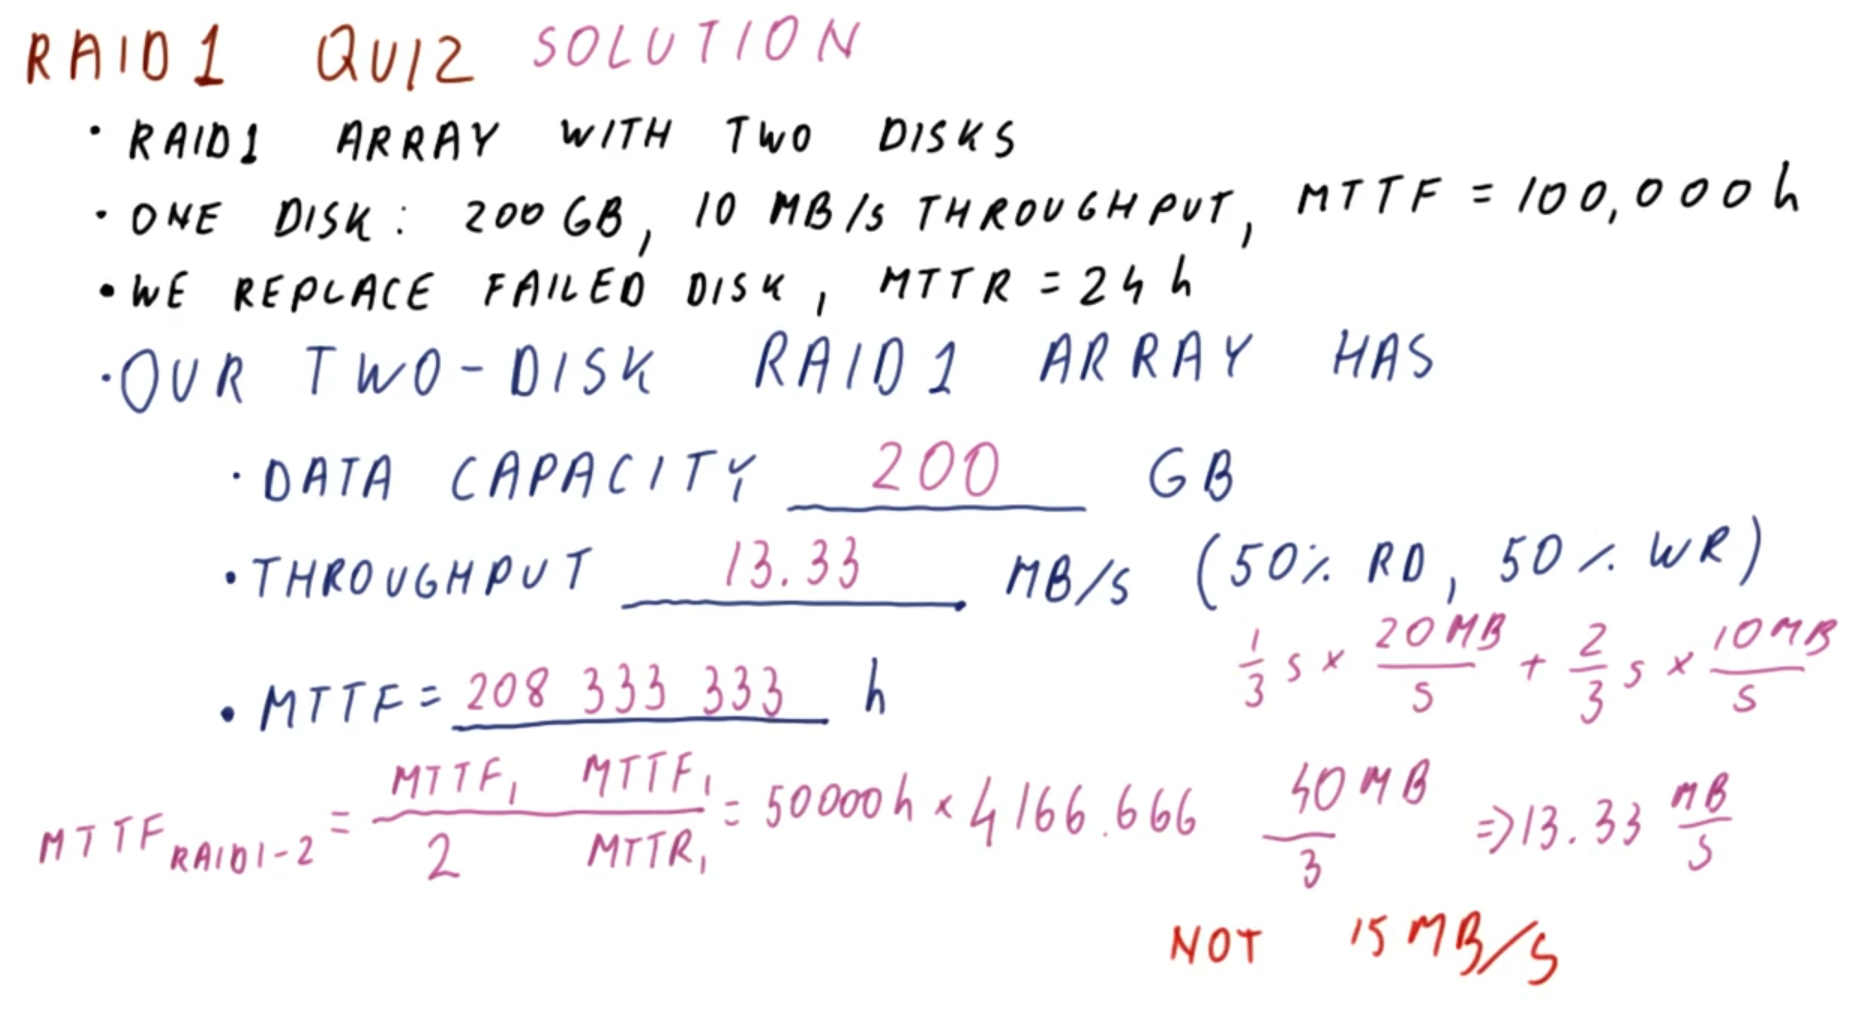 RAID1 QUIZ SOLUTION
· RAID1 ARRAY WITH TWO DISKS
· ONE DISK: 200 GB, 10 MB/s THROUGHPUT, MTTF = 100,000 h
· WE REPLACE FAILED DISK, MTTR = 24 h
· OUR TWO-DISK RAID1 ARRAY HAS
· DATA CAPACITY 200 GB
· THROUGHPUT 13.33 MB/s (50% RD, 50% WR)
1/3 s × 20MB/s + 2/3 s × 10MB/s
· MTTF = 208 333 333 h
MTTF RAID1-2 = MTTF1/2 MTTF1/MTTR1 = 50000h × 4166.666
40MB/3 => 13.33 MB/s
NOT 15 MB/s